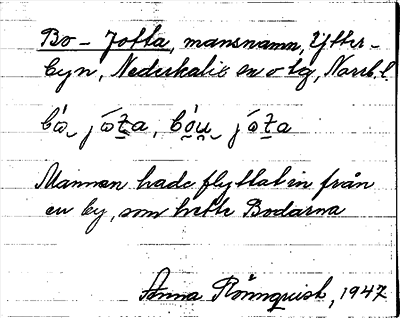 Bo-Jotta, mansnamn, Ytter-
byn, Nederkalix sn o tg, Norrb. l.
Mannen hade flyttat in från
en by, som hette Bodarna
Anna Rönnquist, 1947